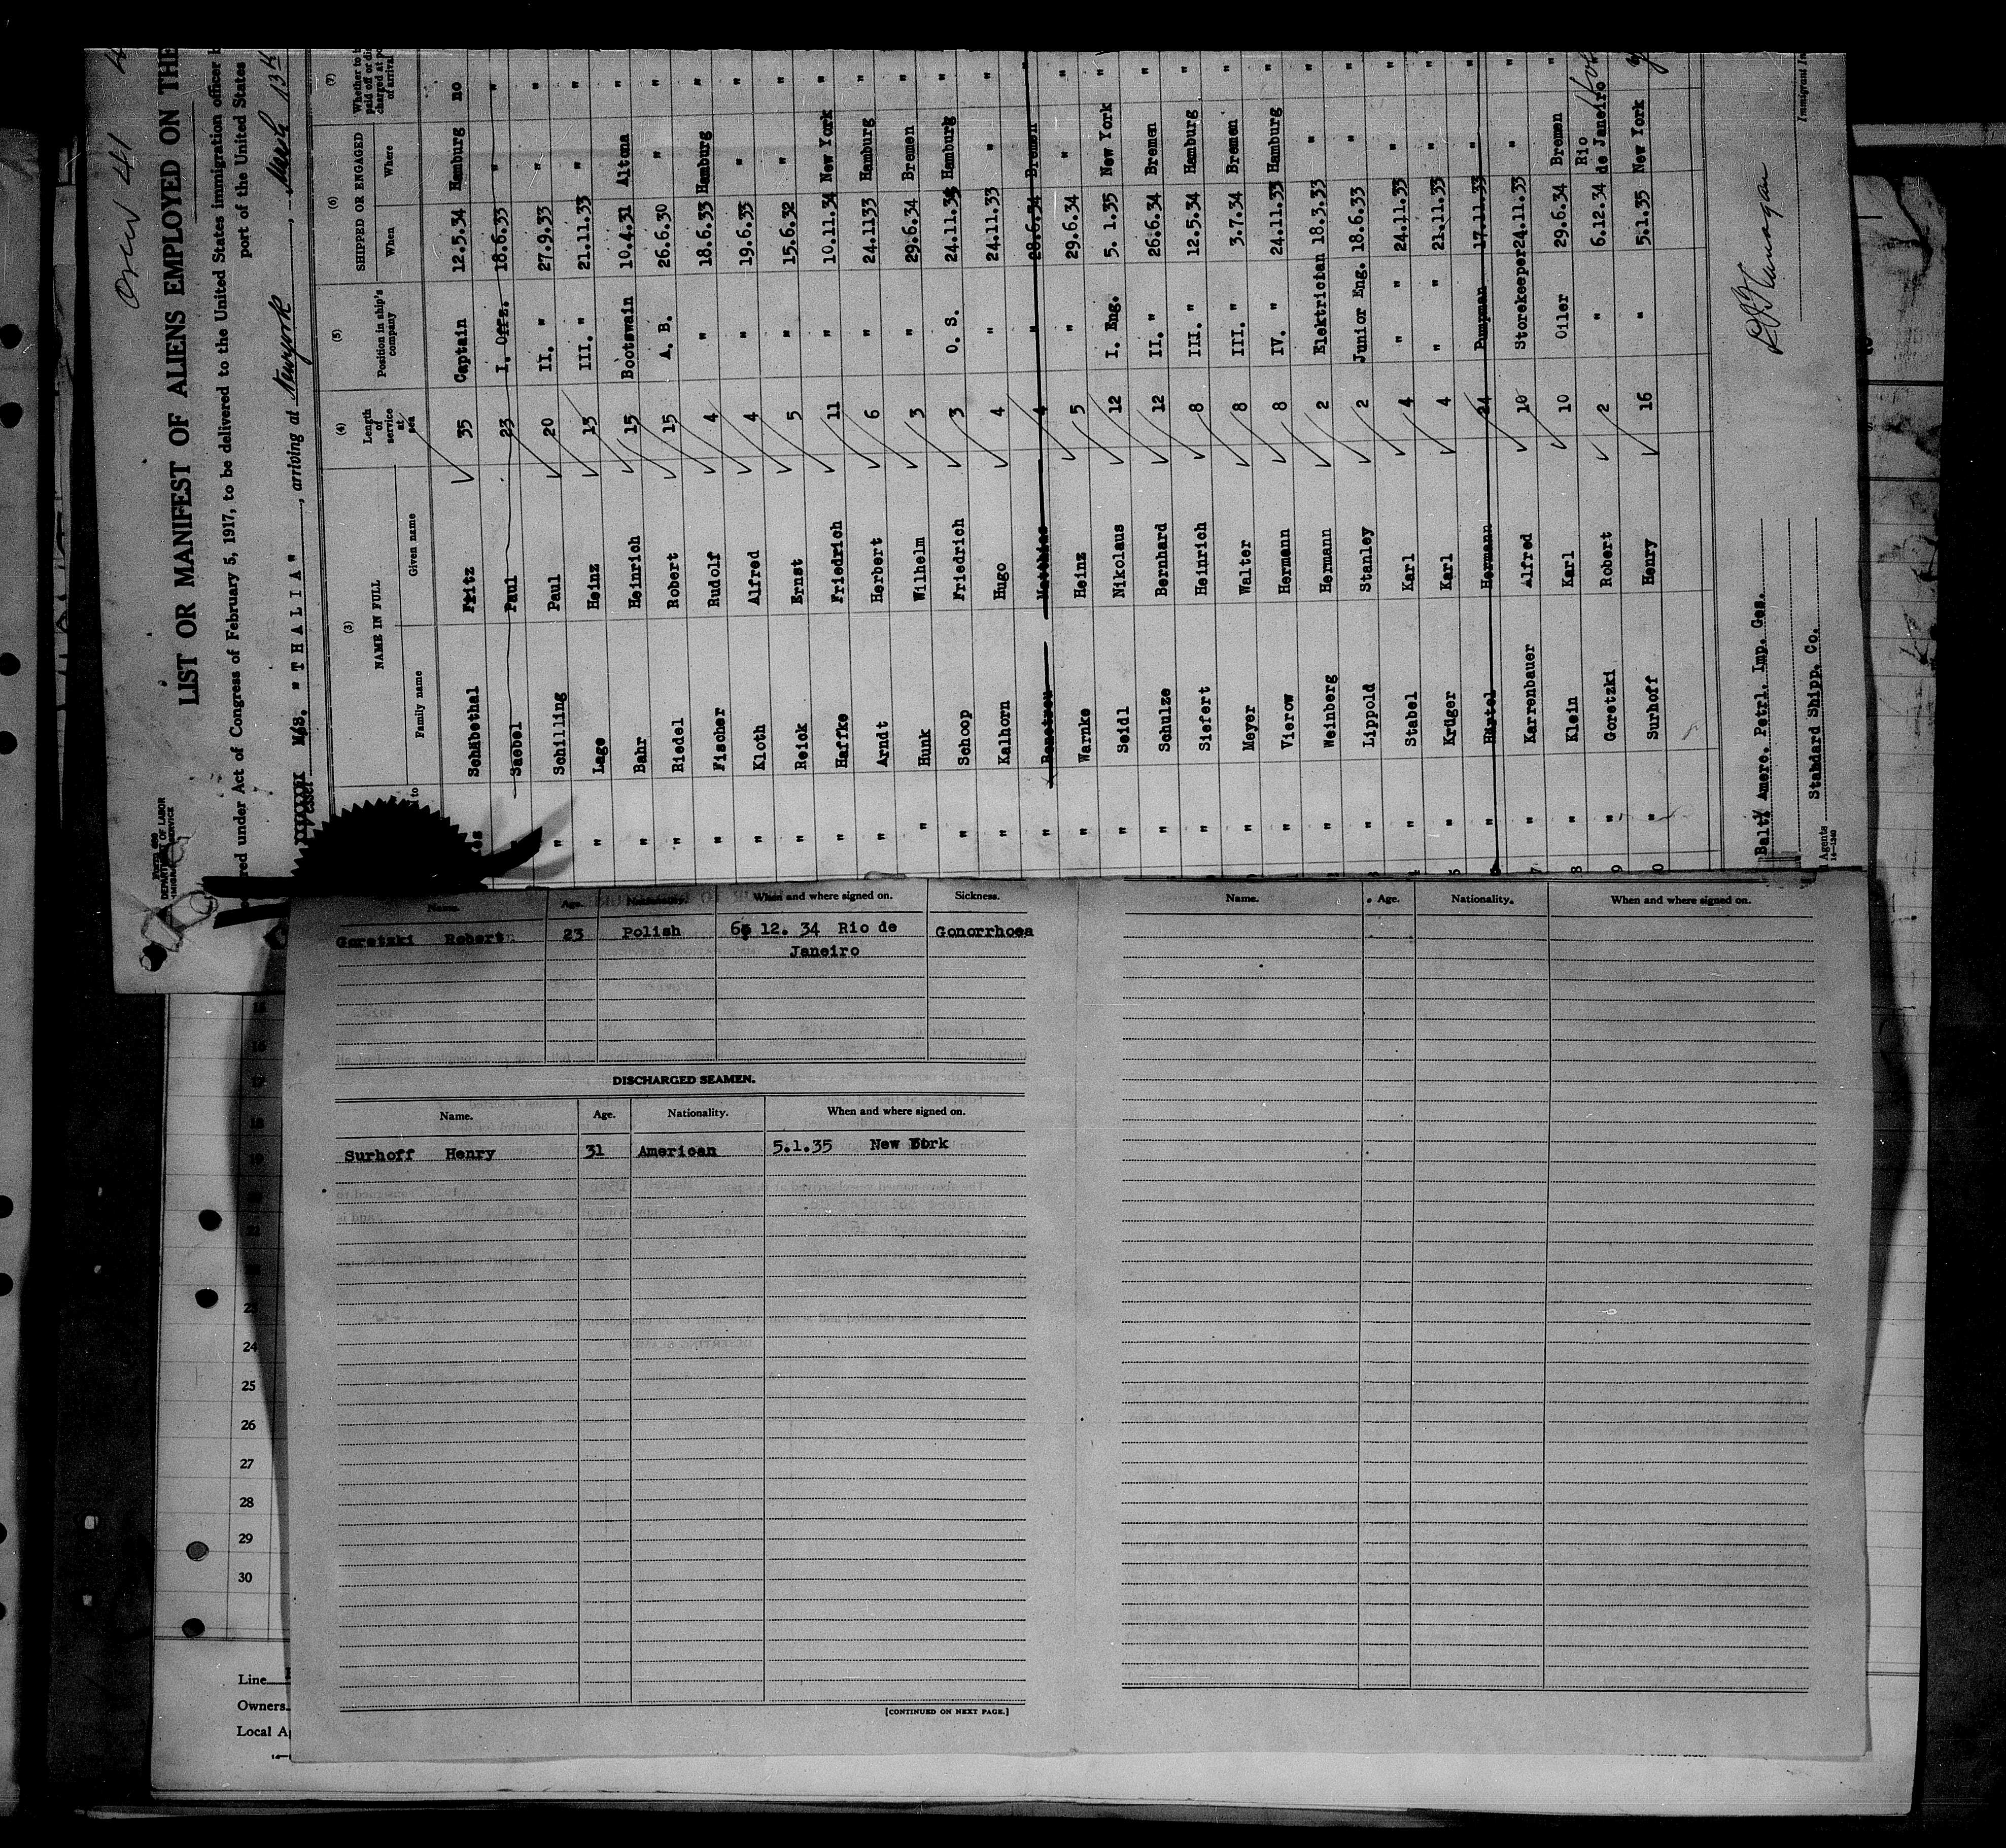 Crew 41
LIST OR MANIFEST OF ALIENS EMPLOYED ON THE
red under Act of Congress of February 5, 1917, to be delivered to the United States immigration officer
port of the United States
Vessel M/S. "THALIA", arriving at Newyork, March 13th
(3) (4) (5) (6) (7)
NAME IN FULL Length of service at sea Position in ship's company SHIPPED OR ENGAGED Whether to
Family name Given name When Where
Schäbethal Fritz 35 Captain 12.5.34 Hamburg no
Saebel Paul 23 I. Offz. 18.6.33 " "
" Schilling Paul 20 II. " 27.9.33 " "
" Lage Heinz 13 III. " 21.11.33 " "
" Bahr Heinrich 15 Bootswain 10.4.31 Altona "
" Riedel Robert 15 A. B. 26.6.30 " "
" Fischer Rudolf 4 " 18.6.33 Hamburg "
" Kloth Alfred 4 " 19.6.33 " "
" Reick Ernst 5 " 15.6.32 " "
" Haffke Friedrich 11 " 10.11.34 New York "
" Arndt Herbert 6 " 24.1133 Hamburg "
" Hunk Wilhelm 3 " 29.6.34 Bremen "
" Schoop Friedrich 3 O. S. 24.11.34 Hamburg "
" Kalhorn Hugo 4 " 24.11.33 " "
" Matthias 4 " 28.6.34 Bremen "
" Warnke Heinz 5 " 29.6.34 " "
" Seidl Nikolaus 12 I. Eng. 5. 1.35 New York "
" Schulze Bernhard 12 II. " 26.6.34 Bremen "
" Siefert Heinrich 8 III. " 12.5.34 Hamburg "
" Meyer Walter 8 III. " 3.7.34 Bremen "
" Vierow Hermann 8 IV. " 24.11.33 Hamburg "
" Weinberg Hermann 2 Elektrician 18.3.33 " "
" Lippold Stanley 2 Junior Eng. 18.6.33 " "
" Stabel Karl 4 " " 24.11.33 " "
" Krüger Karl 4 " " 21.11.33 " "
" Härtel Hermann 24 Pumpman 17.11.33 " "
" Karrenbauer Alfred 10 Storekeeper 24.11.33 " "
" Klein Karl 10 Oiler 29.6.34 Bremen "
" Goretzki Robert 2 " 6.12.34 Rio de Janeiro "
" Surhoff Henry 16 " 5.1.35 New York "
Balt/ Amere. Petrl. Imp. Ges.
Agents Stahdard Shipp. Co.
Immigrant In
Name. Age. Nationality. When and where signed on. Sickness.
Goretzki Robert 23 Polish 6 12. 34 Rio de Gonorrhoea
Janeiro
DISCHARGED SEAMEN.
Name. Age. Nationality. When and where signed on.
Surhoff Henry 31 American 5.1.35 New York
[CONTINUED ON NEXT PAGE.]
Name. Age. Nationality. When and where signed on.
15
16
17
18
19
23
24
25
26
27
28
29
30
Line
Owners
Local A